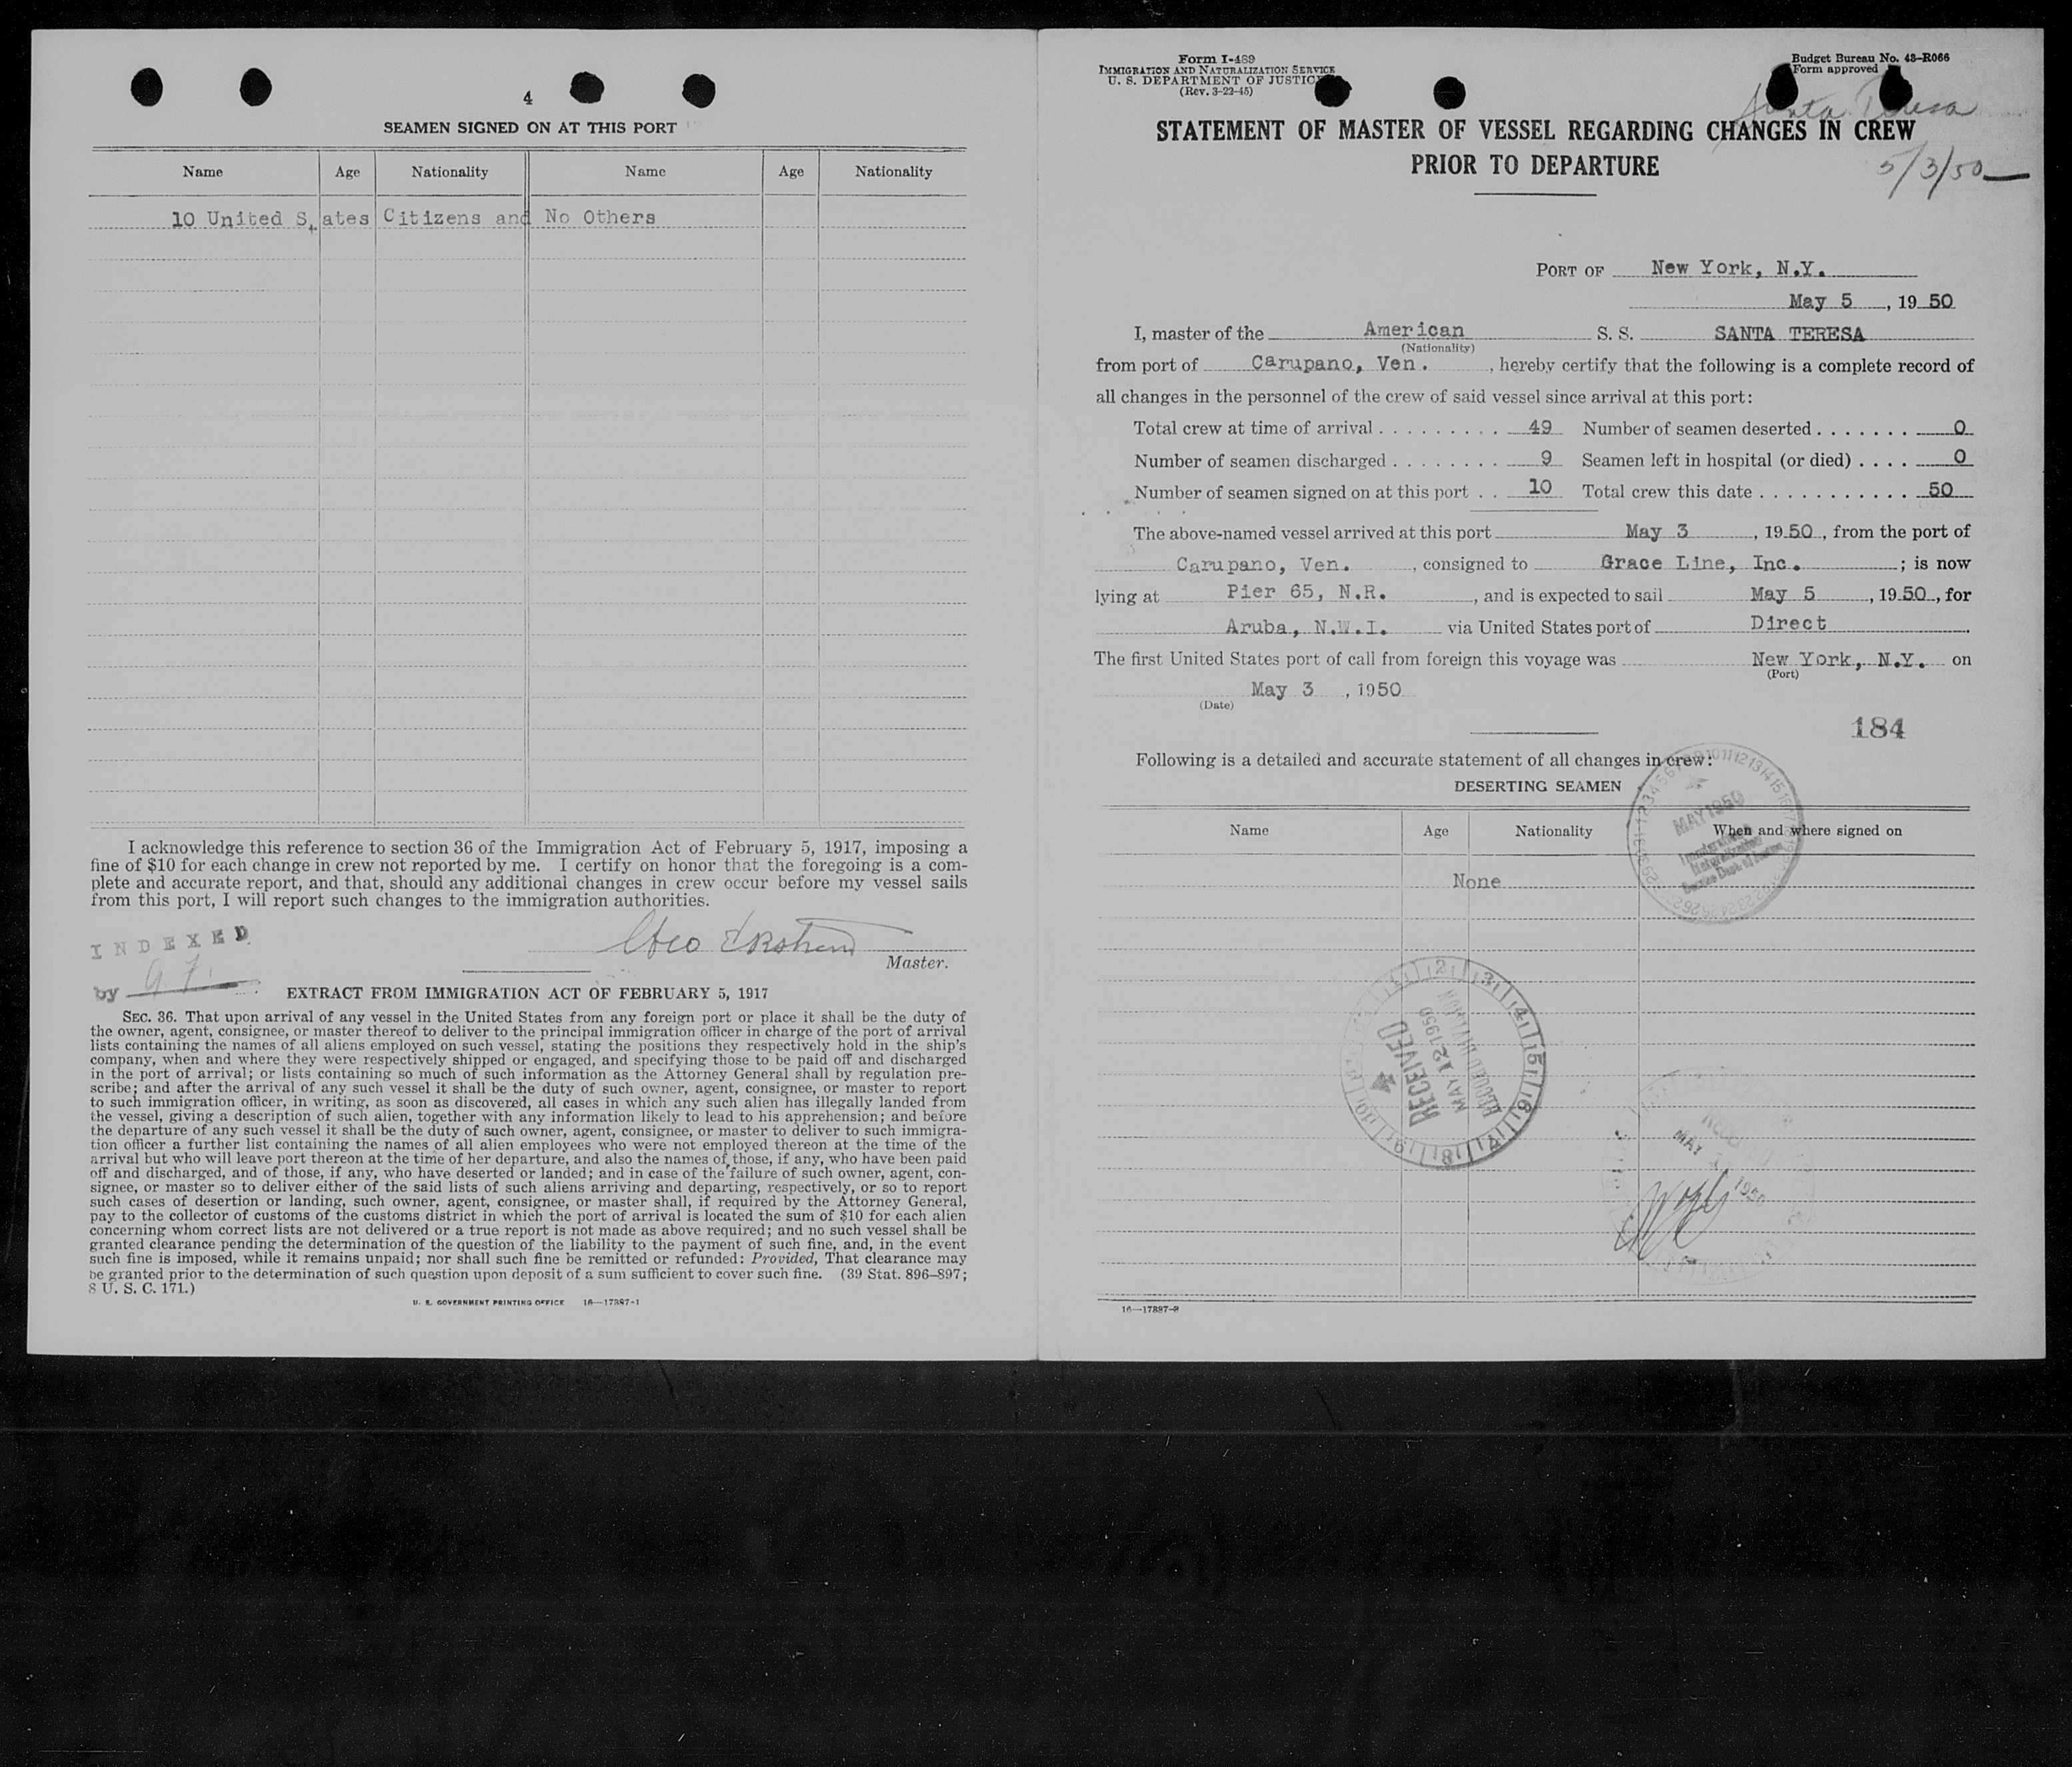 4
SEAMEN SIGNED ON AT THIS PORT
Name Age Nationality Name Age Nationality
10 United States Citizens and No Others
I acknowledge this reference to section 36 of the Immigration Act of February 5, 1917, imposing a
fine of $10 for each change in crew not reported by me. I certify on honor that the foregoing is a com-
plete and accurate report, and that, should any additional changes in crew occur before my vessel sails
from this port, I will report such changes to the immigration authorities.
INDEXED
Master.
by
EXTRACT FROM IMMIGRATION ACT OF FEBRUARY 5, 1917
SEC. 36. That upon arrival of any vessel in the United States from any foreign port or place it shall be the duty of
the owner, agent, consignee, or master thereof to deliver to the principal immigration officer in charge of the port of arrival
lists containing the names of all aliens employed on such vessel, stating the positions they respectively hold in the ship's
company, when and where they were respectively shipped or engaged, and specifying those to be paid off and discharged
in the port of arrival; or lists containing so much of such information as the Attorney General shall by regulation pre-
scribe; and after the arrival of any such vessel it shall be the duty of such owner, agent, consignee, or master to report
to such immigration officer, in writing, as soon as discovered, all cases in which any such alien has illegally landed from
the vessel, giving a description of such alien, together with any information likely to lead to his apprehension; and before
the departure of any such vessel it shall be the duty of such owner, agent, consignee, or master to deliver to such immigra-
tion officer a further list containing the names of all alien employees who were not employed thereon at the time of the
arrival but who will leave port thereon at the time of her departure, and also the names of those, if any, who have been paid
off and discharged, and of those, if any, who have deserted or landed; and in case of the failure of such owner, agent, con-
signee, or master so to deliver either of the said lists of such aliens arriving and departing, respectively, or so to report
such cases of desertion or landing, such owner, agent, consignee, or master shall, if required by the Attorney General,
pay to the collector of customs of the customs district in which the port of arrival is located the sum of $10 for each alien
concerning whom correct lists are not delivered or a true report is not made as above required; and no such vessel shall be
granted clearance pending the determination of the question of the liability to the payment of such fine, and, in the event
such fine is imposed, while it remains unpaid; nor shall such fine be remitted or refunded: Provided, That clearance may
be granted prior to the determination of such question upon deposit of a sum sufficient to cover such fine. (39 Stat. 896–897;
8 U. S. C. 171.)
U. S. GOVERNMENT PRINTING OFFICE 16—17897-1
Form I-489
IMMIGRATION AND NATURALIZATION SERVICE
U. S. DEPARTMENT OF JUSTICE
(Rev. 3-22-45)
Budget Bureau No. 43-R066
Form approved
Santa Teresa
STATEMENT OF MASTER OF VESSEL REGARDING CHANGES IN CREW
PRIOR TO DEPARTURE
5/3/50
PORT OF New York, N.Y.
May 5, 1950
I, master of the American S. S. SANTA TERESA
(Nationality)
from port of Carupano, Ven., hereby certify that the following is a complete record of
all changes in the personnel of the crew of said vessel since arrival at this port:
Total crew at time of arrival . . . . . . . . . 49 Number of seamen deserted . . . . . . . 0
Number of seamen discharged . . . . . . . . 9 Seamen left in hospital (or died) . . . . 0
Number of seamen signed on at this port . . 10 Total crew this date . . . . . . . . . . . . 50
The above-named vessel arrived at this port May 3, 1950, from the port of
Carupano, Ven., consigned to Grace Line, Inc.; is now
lying at Pier 65, N.R., and is expected to sail May 5, 1950, for
Aruba, N.W.I. via United States port of Direct
The first United States port of call from foreign this voyage was New York, N.Y. on
(Port)
May 3, 1950
(Date)
184
Following is a detailed and accurate statement of all changes in crew:
DESERTING SEAMEN
Name Age Nationality When and where signed on
None
MAY 1950
Immigration &
Naturalization
Service Dept. of Justice
RECEIVED
MAY 12 1950
RECORD DIVISION
MAY 1950
16—17897-2